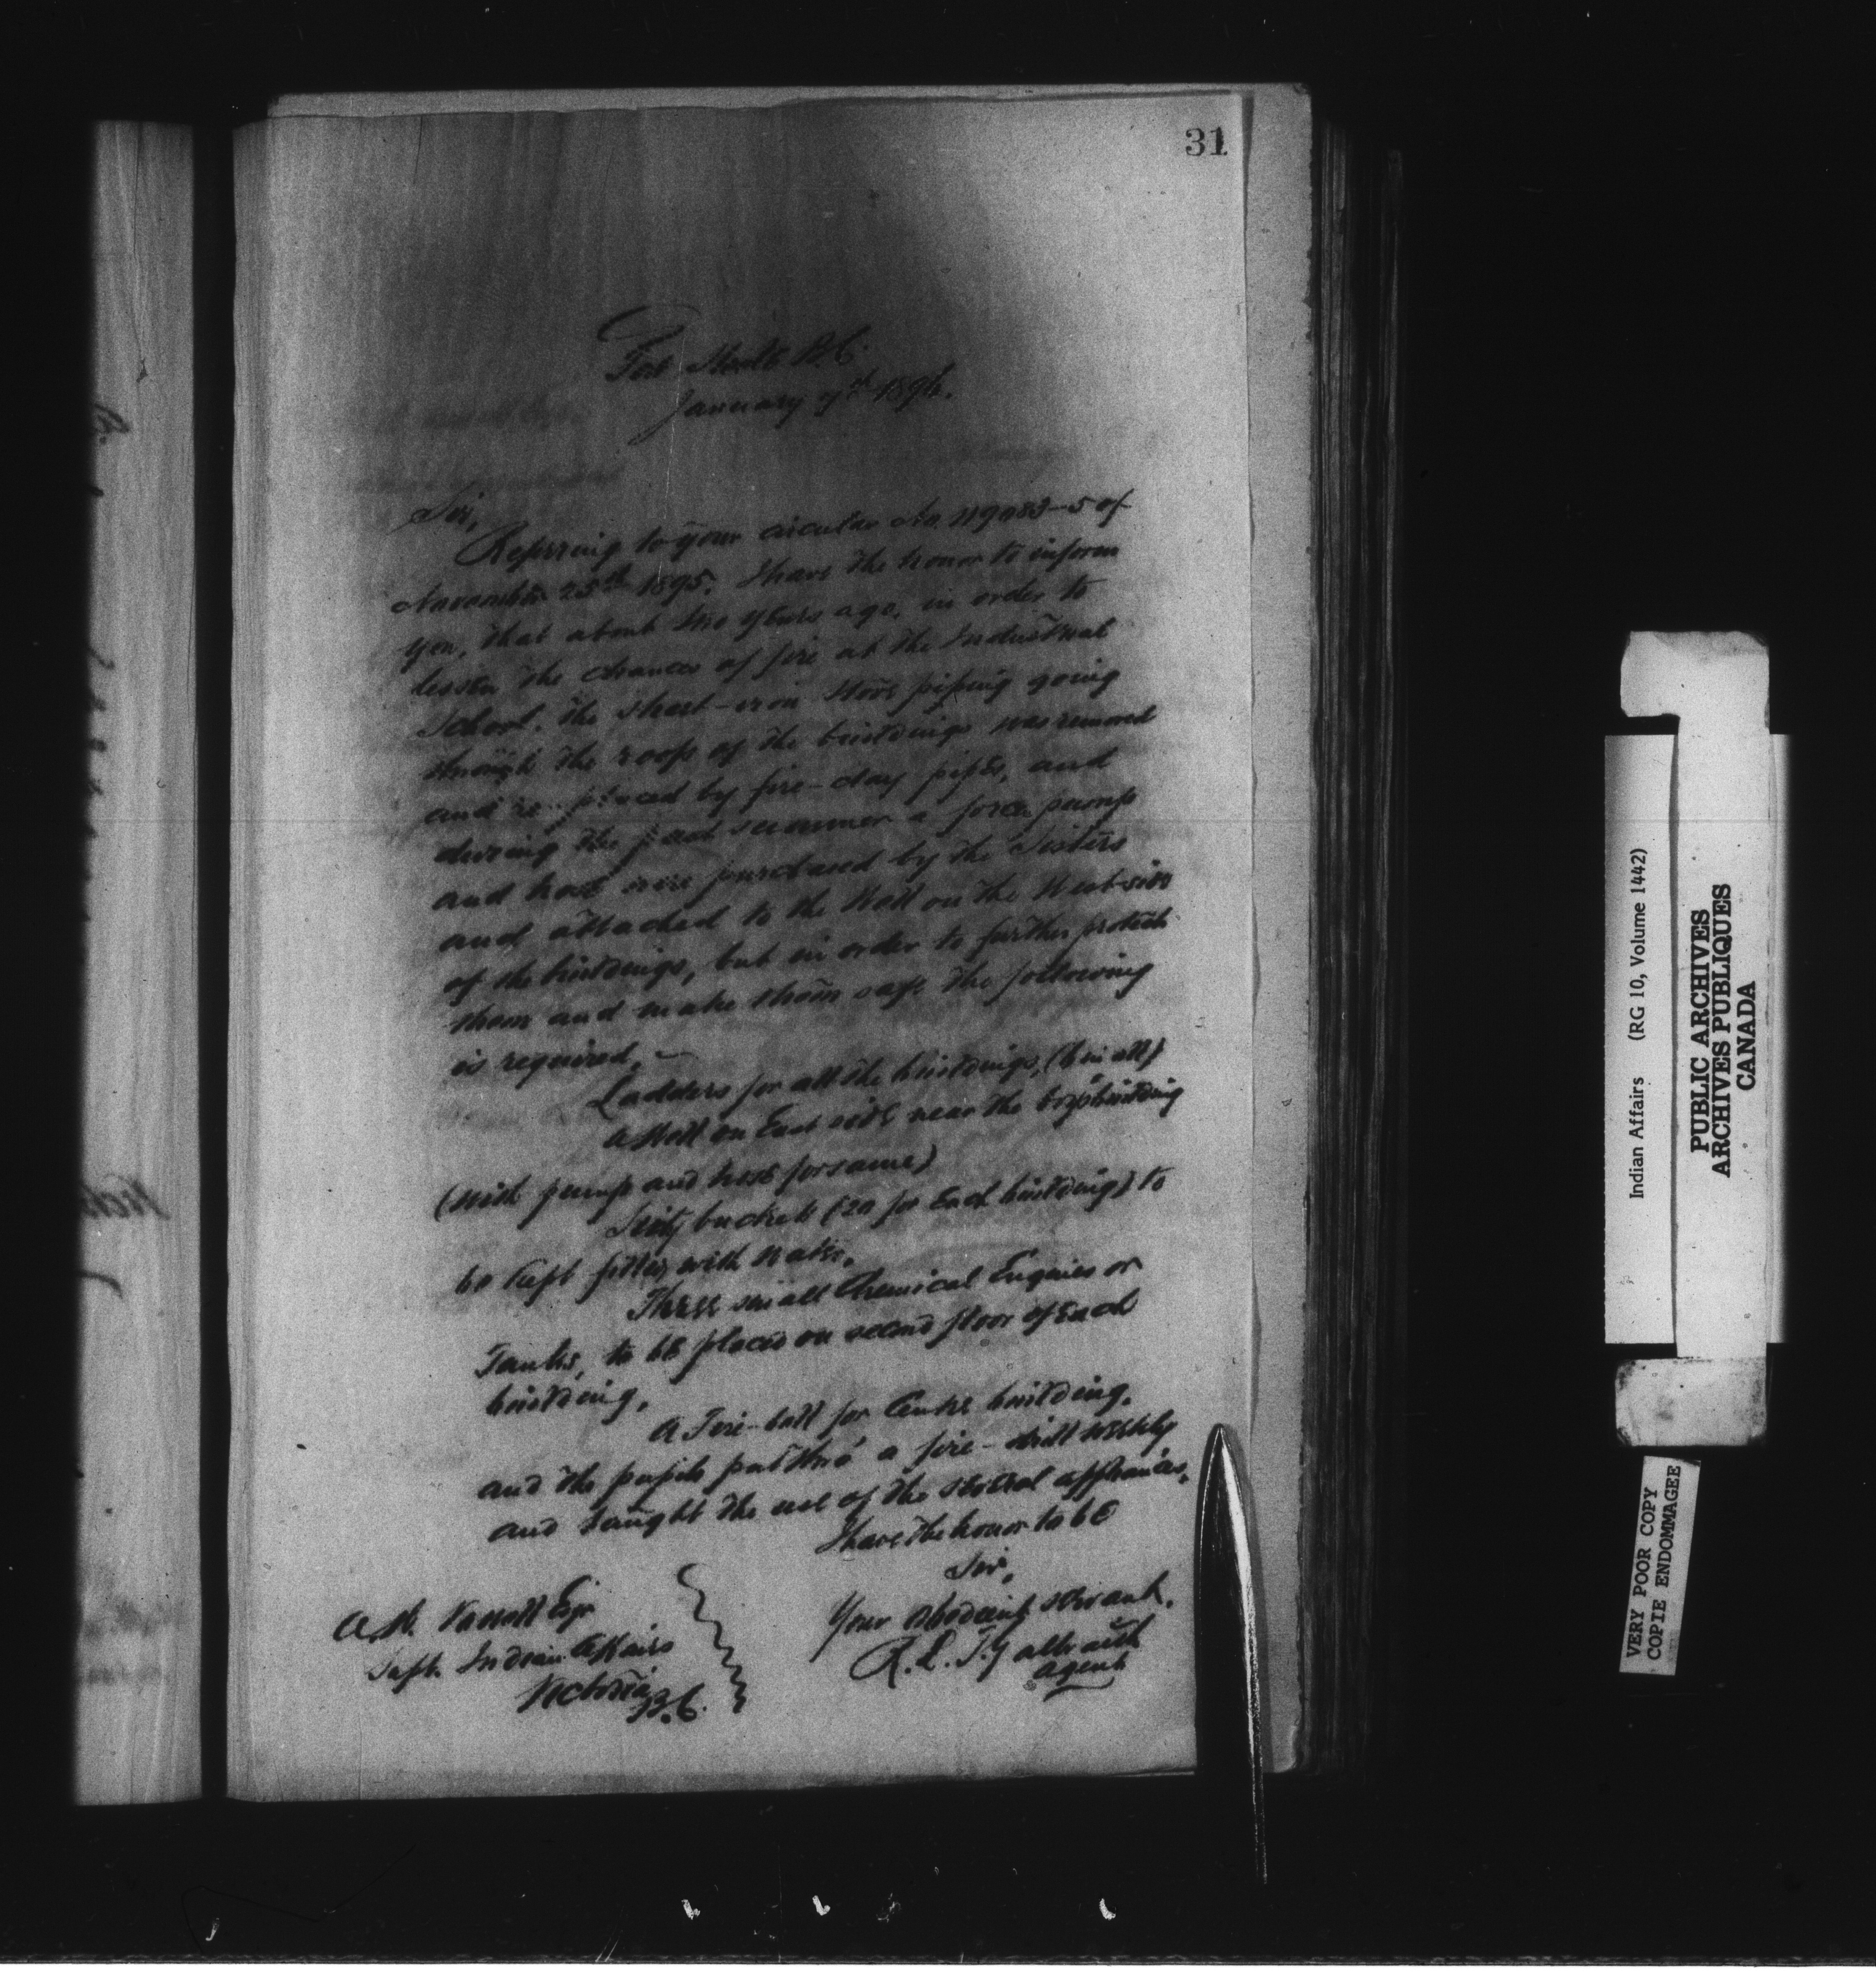 31
Fort Steele B.C.
January 7th 1896.
Sir,
Referring to your circular No. 119083-5 of
November 25th 1895. I have the honor to inform
you, that about two years ago, in order to
lessen the chances of fire at the Industrial
School. the sheet-iron stove piping going
through the roofs of the buildings was removed
and re-placed by fire-clay pipes, and
during the past summer a force pump
and hose were purchased by the Sisters
and attached to the Well on the West-side
of the buildings, but in order to further protect
them and make them safe the following
is required, —
Ladders for all the buildings, in all)
A Well on East side near the boys building
(with pump and hose for same)
Sixty buckets (20 for Each building) to
be kept filled with water.
Three small Chemical Engines or
Tanks, to be placed on second floor of Each
building,
A Fire-bell for Centre building,
and the pupils put thro' a fire-drill weekly
and taught the use of the several appliances.
I have the honor to be
Sir,
Your obedient servant,
R. L. T. Galbraith
Agent
A. W. Vowell Esqr
Supt. Indian Affairs
Victoria B.C.
Indian Affairs (RG 10, Volume 1442)
PUBLIC ARCHIVES
ARCHIVES PUBLIQUES
CANADA
VERY POOR COPY
COPIE ENDOMMAGEE